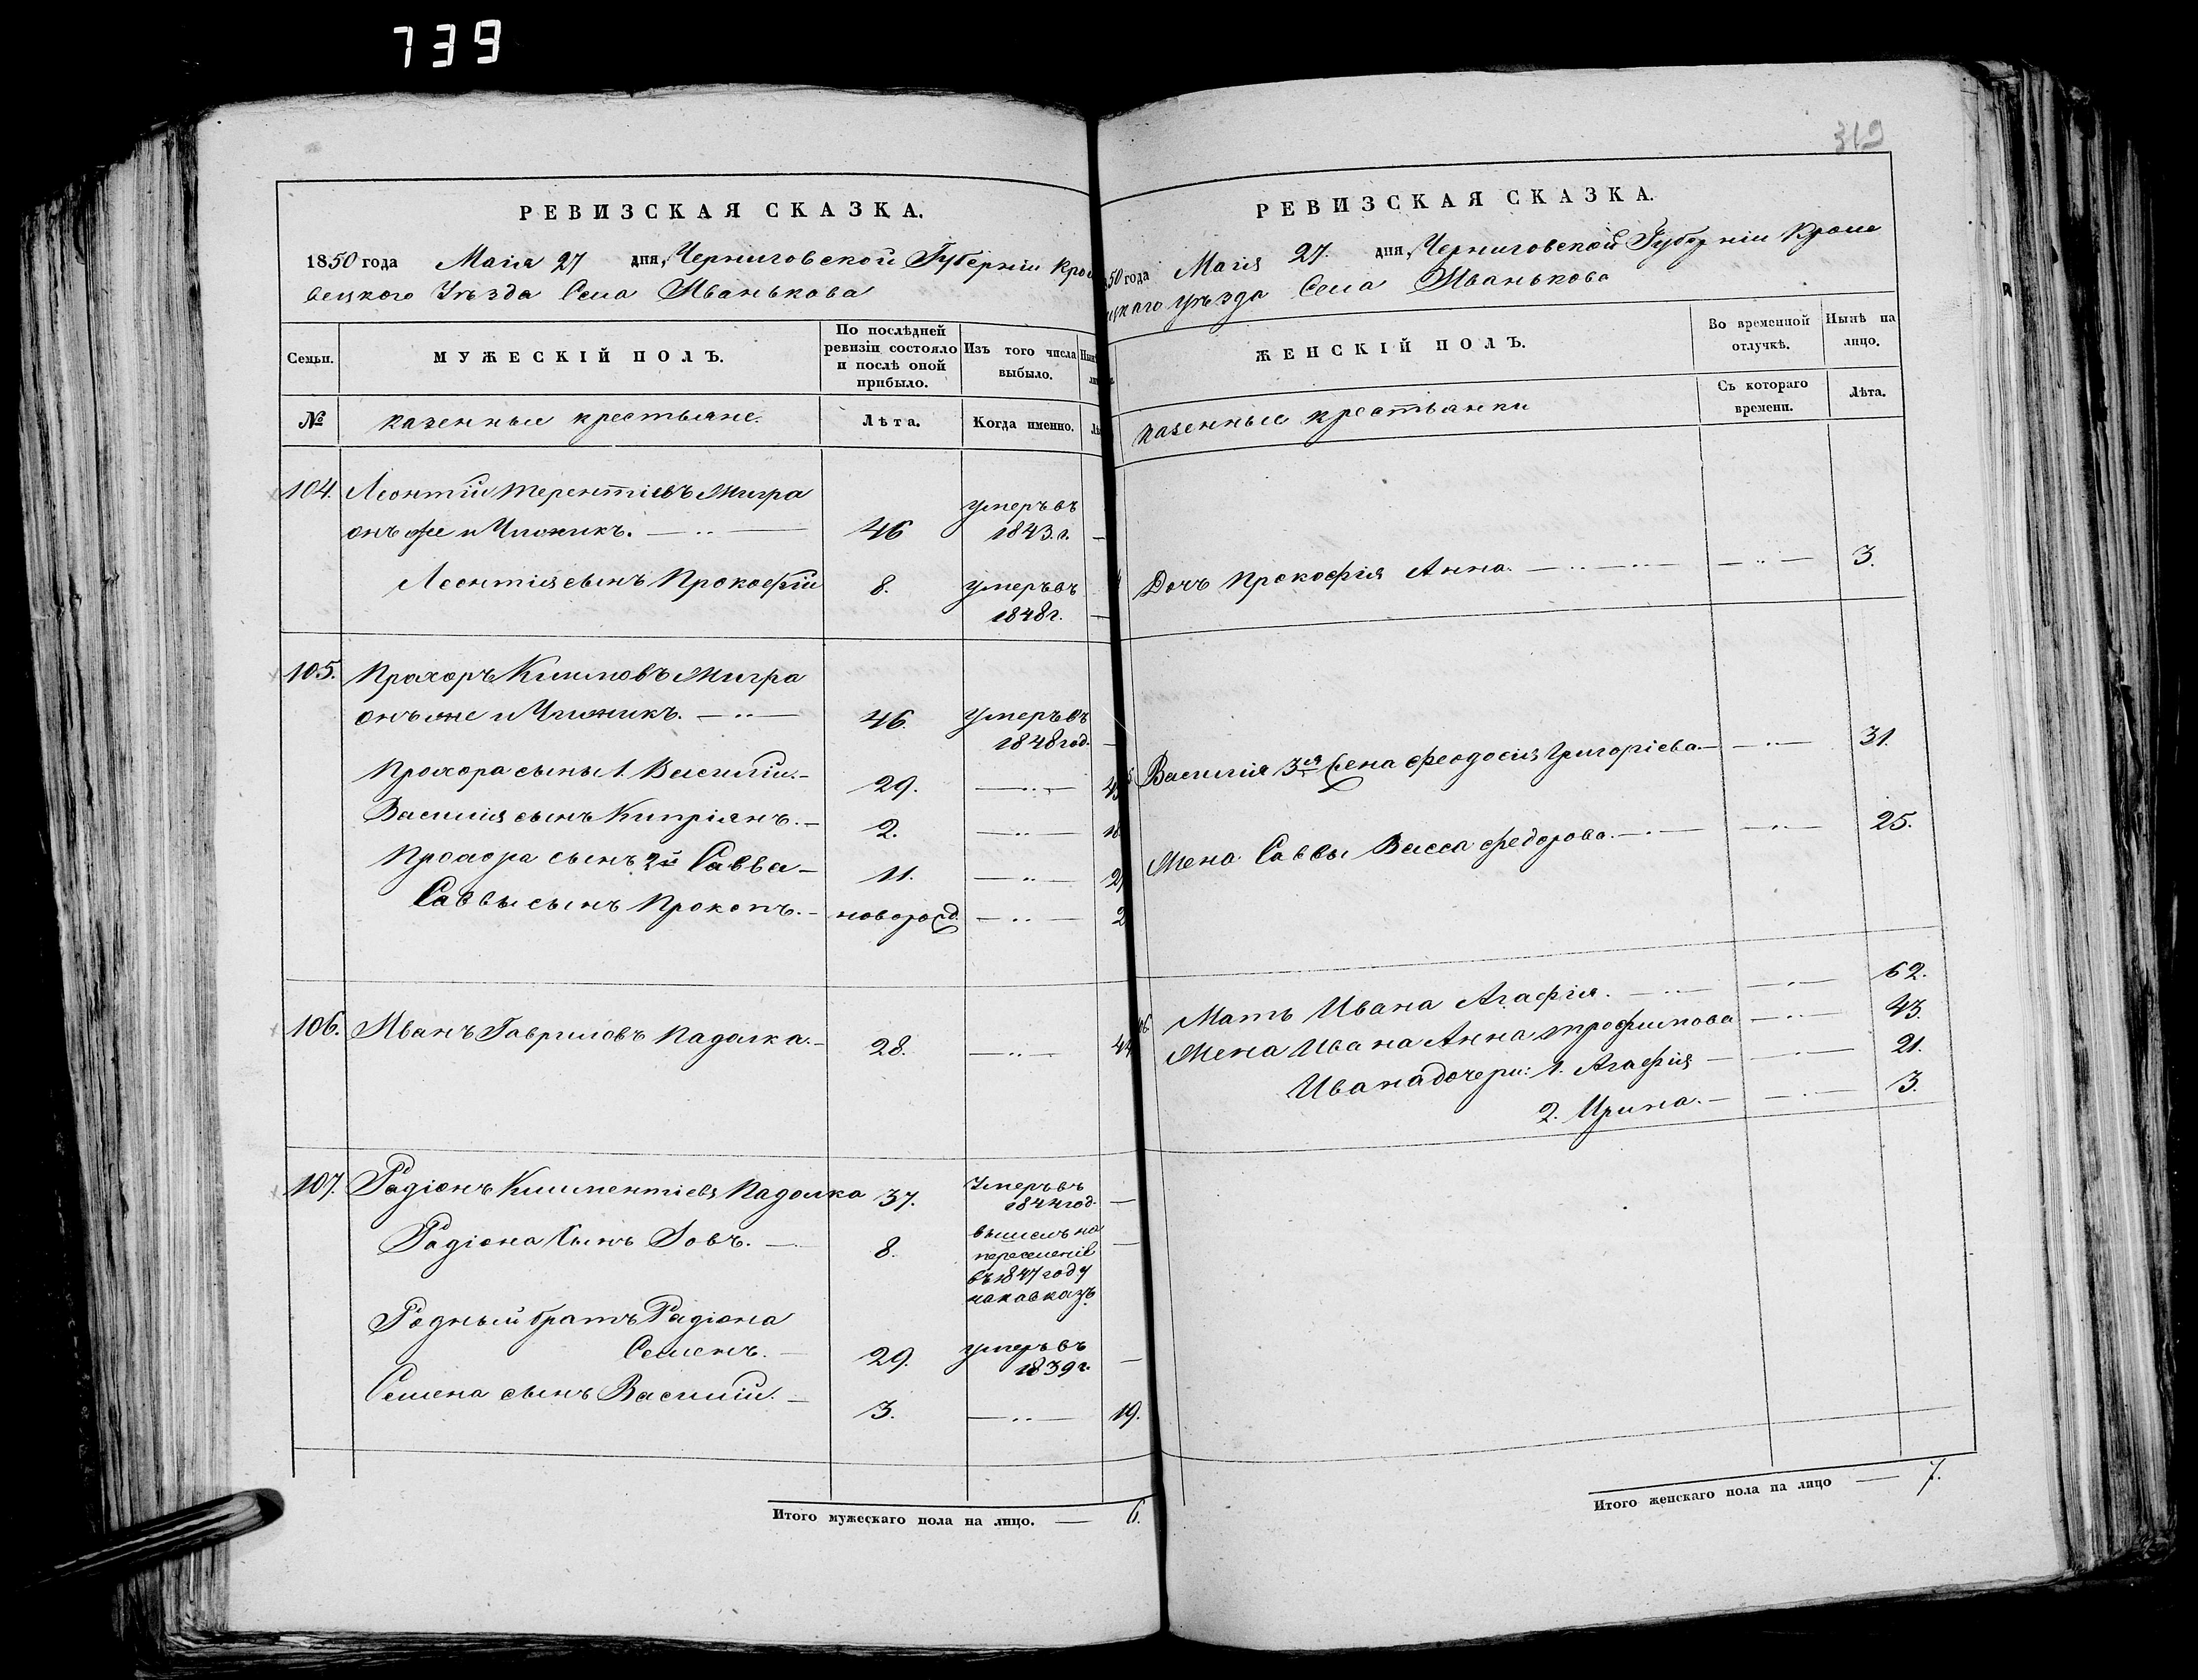 739
РЕВИЗСКАЯ СКАЗКА.
1850 года Маія 27 дня, Черниговской Губерніи Кро
вецкого Уѣзда Села Иванькова
Семьи.
МУЖЕСКІЙ ПОЛЪ.
По послѣдней ревизіи состояло и послѣ оной прибыло.
Изъ того числа выбыло.
№
казенные крестьяне.
Лѣта.
Когда именно.
104. Леонтій Терентіевъ Мигра
онъ же и Чижикъ. 46 умеръ въ 1843 г. —
Леонтія сынъ Прокофій 8. умеръ въ 1848 г. —
105. Прохоръ Климовъ Мигра
онъ же и Чижикъ. 46. умеръ въ 1848 год. —
Прохора сыны 1. Василій. 29.
Василія сынъ Кипріянъ. 2.
Прохора сынъ 2й Савва 11.
Саввы сынъ Прокопъ. новорожд. 2
106. Иванъ Гавриловъ Падалка. 28. 44
107. Радіонъ Климентіевъ Падалка 37. Умеръ въ 1844 год. —
Радіона сынъ Іовъ. 8. вышелъ на переселеніе въ 1847 году на кавказъ. —
Родный братъ Радіона
Семенъ. 29. умеръ въ 1839 г. —
Семена сынъ Василій. 3. 19.
Итого мужескаго пола на лицо. — 6.
319
РЕВИЗСКАЯ СКАЗКА.
50 года Маія 27. дня, Черниговской Губерніи Кроле
ецкаго уѣзда Села Иванькова
ЖЕНСКІЙ ПОЛЪ.
Во временной отлучкѣ.
Нынѣ на лицо.
казенные крестьянки
Съ котораго времени.
Лѣта.
Дочь Прокофія Анна. 3.
Василія 3ья жена Феодосія Григоріева 31.
Жена Саввы Васса Федорова. 25.
Мать Ивана Агафія. 62.
Жена Ивана Анна Трофимова 43.
Ивана дочери: 1. Агафія 21.
2. Ирина. 3.
Итого женскаго пола на лицо — 7.